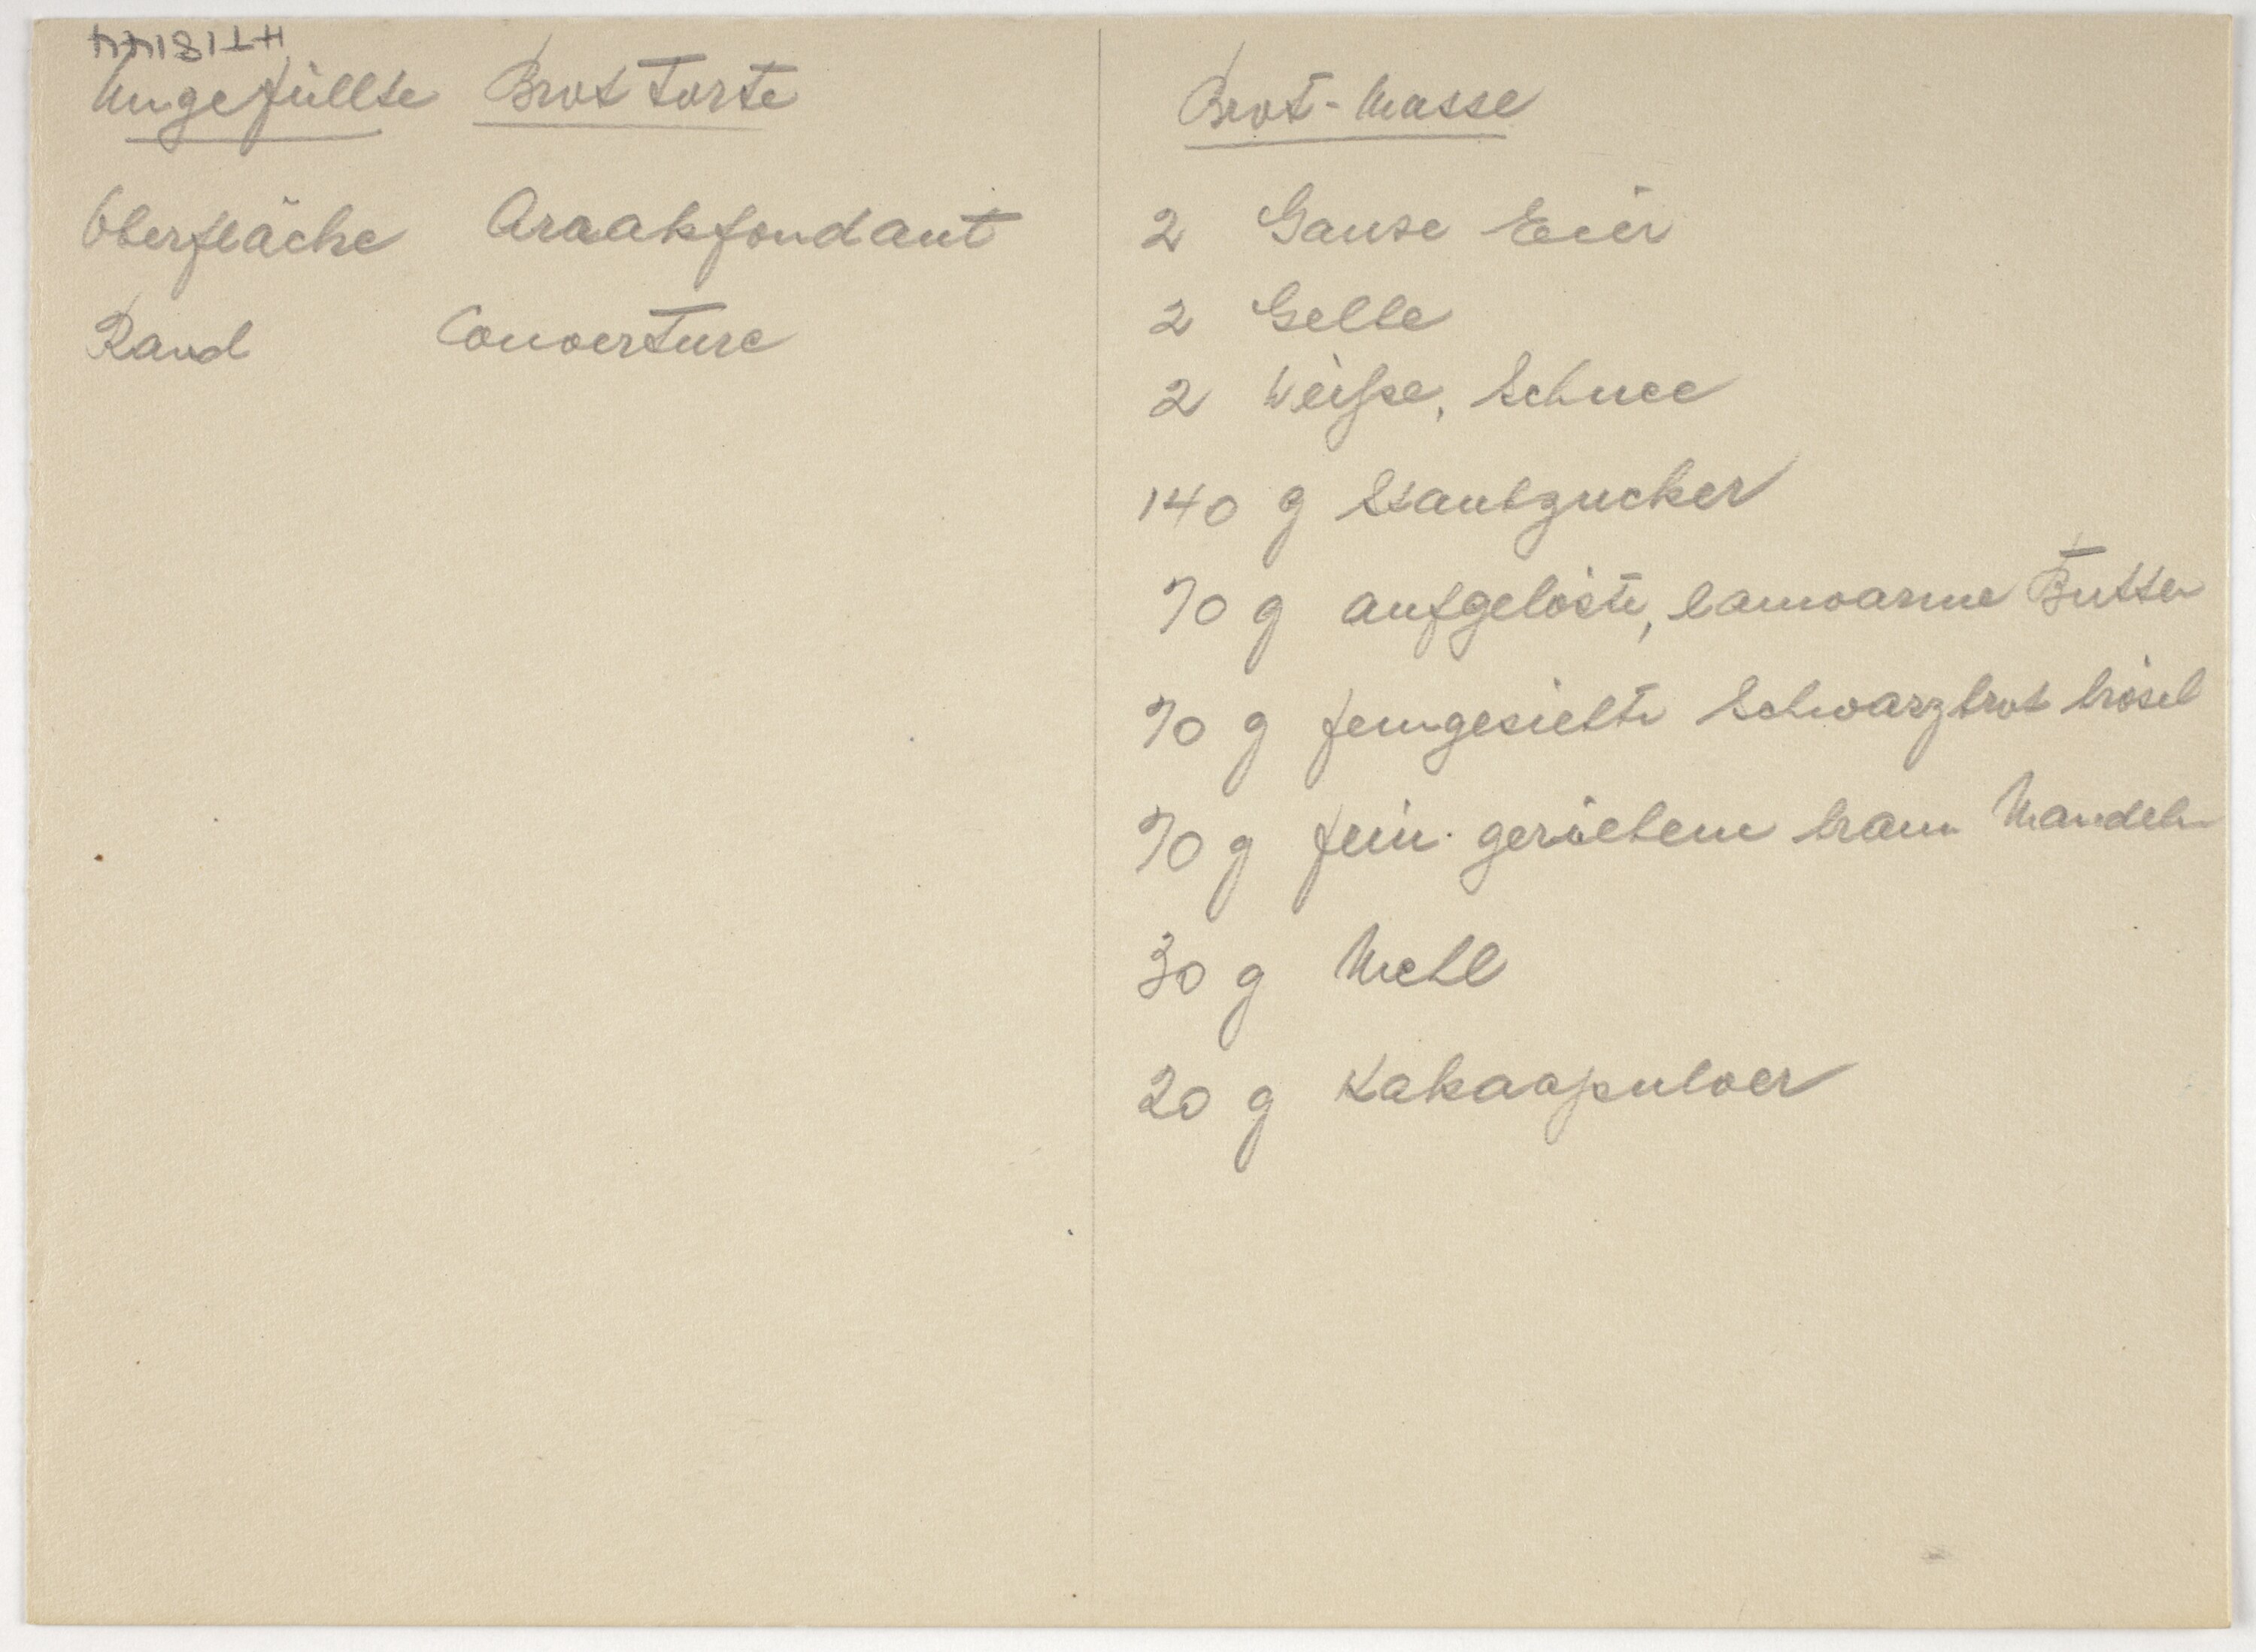 HT18144
Ungefüllte Brot Torte
Oberfläche Araakfondant
Rand Couverture
Brot-Masse
2 Ganze Eier
2 Gelbe
2 Weiße, Schnee
140 g Staubzucker
70 g aufgelöste, lauwarme Butter
70 g feingesiebte Schwarzbrot brösel
70 g fein geriebene braun Mandeln
30 g Mehl
20 g Kakaopulver